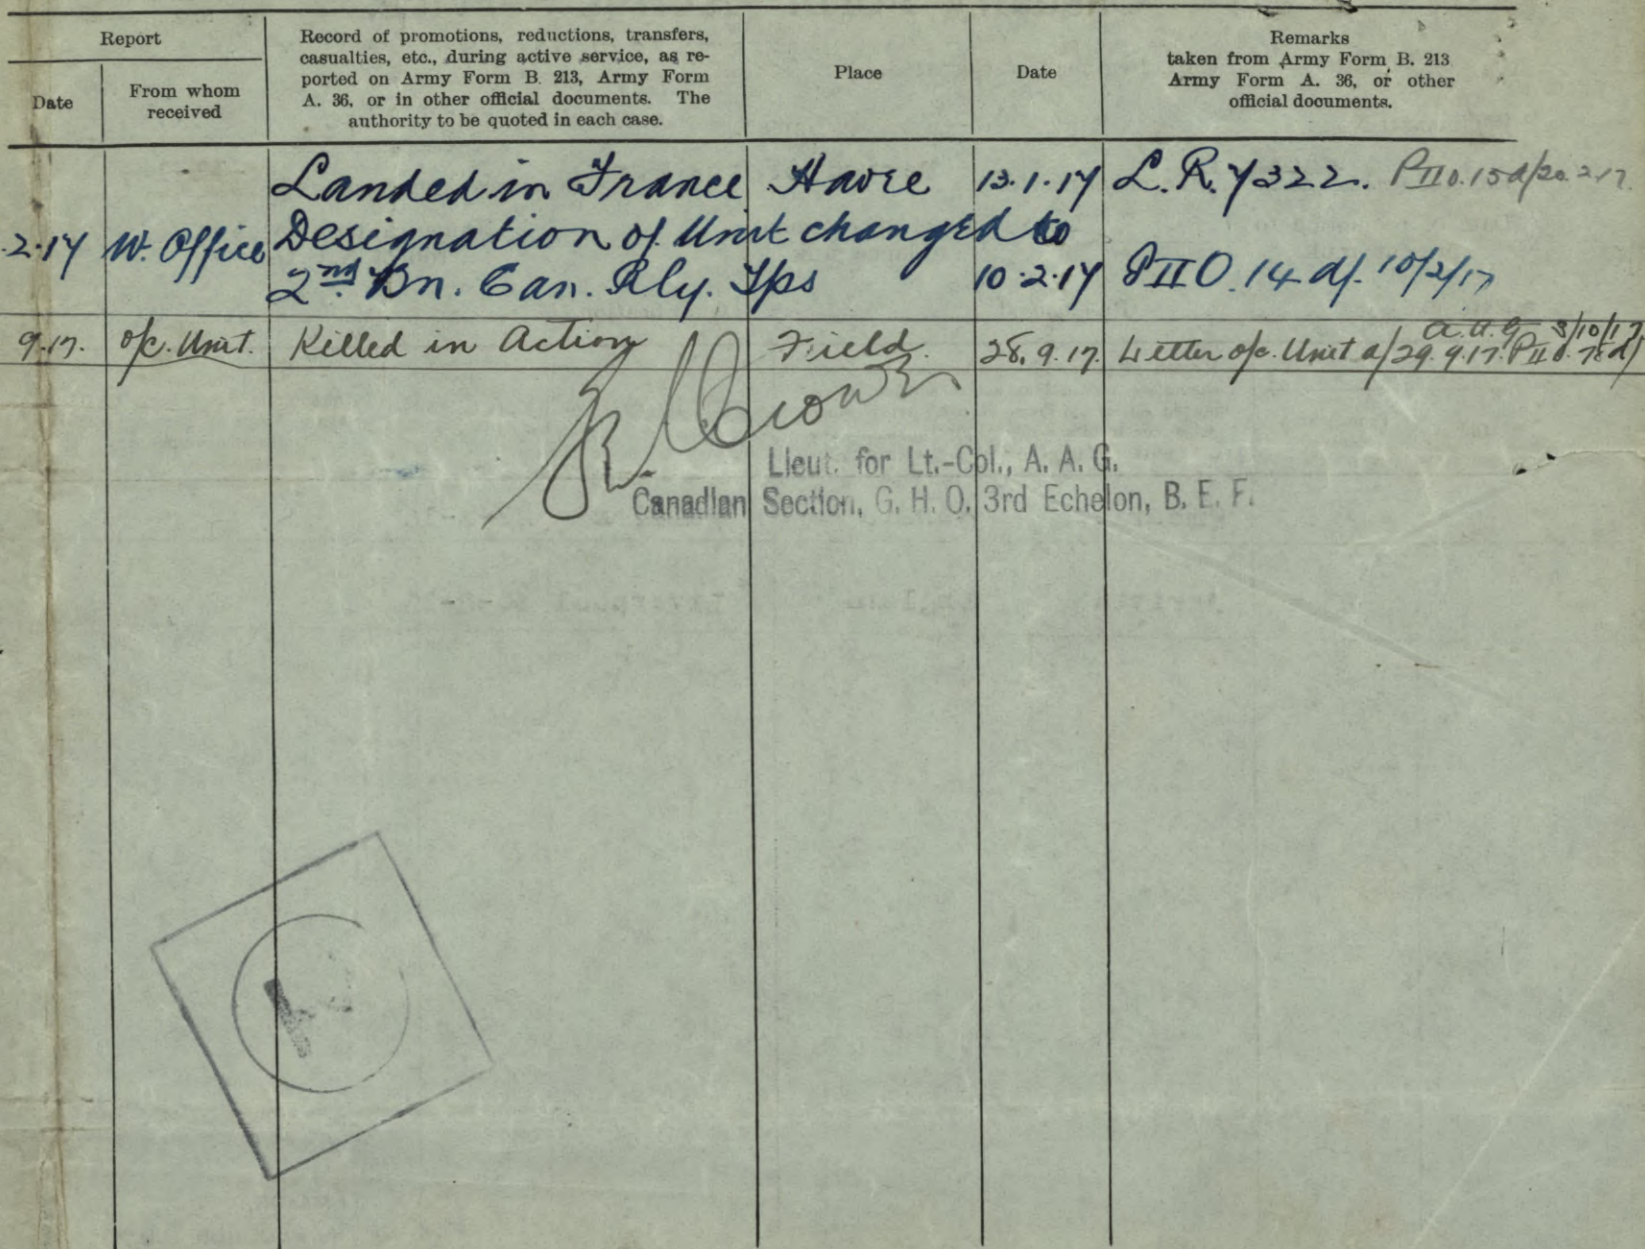 Report
Date
From whom
received
Record of promotions, reductions, transfers,
casualties, etc., during active service, as re-
ported on Army Form B. 213, Army Form
A. 36, or in other official documents. The
authority to be quoted in each case.
Place
Date
Remarks
taken from Army Form B. 213
Army Form A. 36, or other
official documents.
Landed in France Havre 13.1.17 L.R. 7322. PII O. 15 d/20.2.17
.2.17 W. Office Designation of Unit changed to
2nd Bn. Can. Rly. Tps 10.2.17 PII O. 14 d/. 10/2/17
A.A.G 3/10/17
9.17. o/c. Unit. Killed in Action Field. 28.9.17. Letter o/c Unit d/29.9.17. PII O.
Lieut. for Lt.-Col., A. A. G.
Canadian Section, G. H. Q. 3rd Echelon, B. E. F.